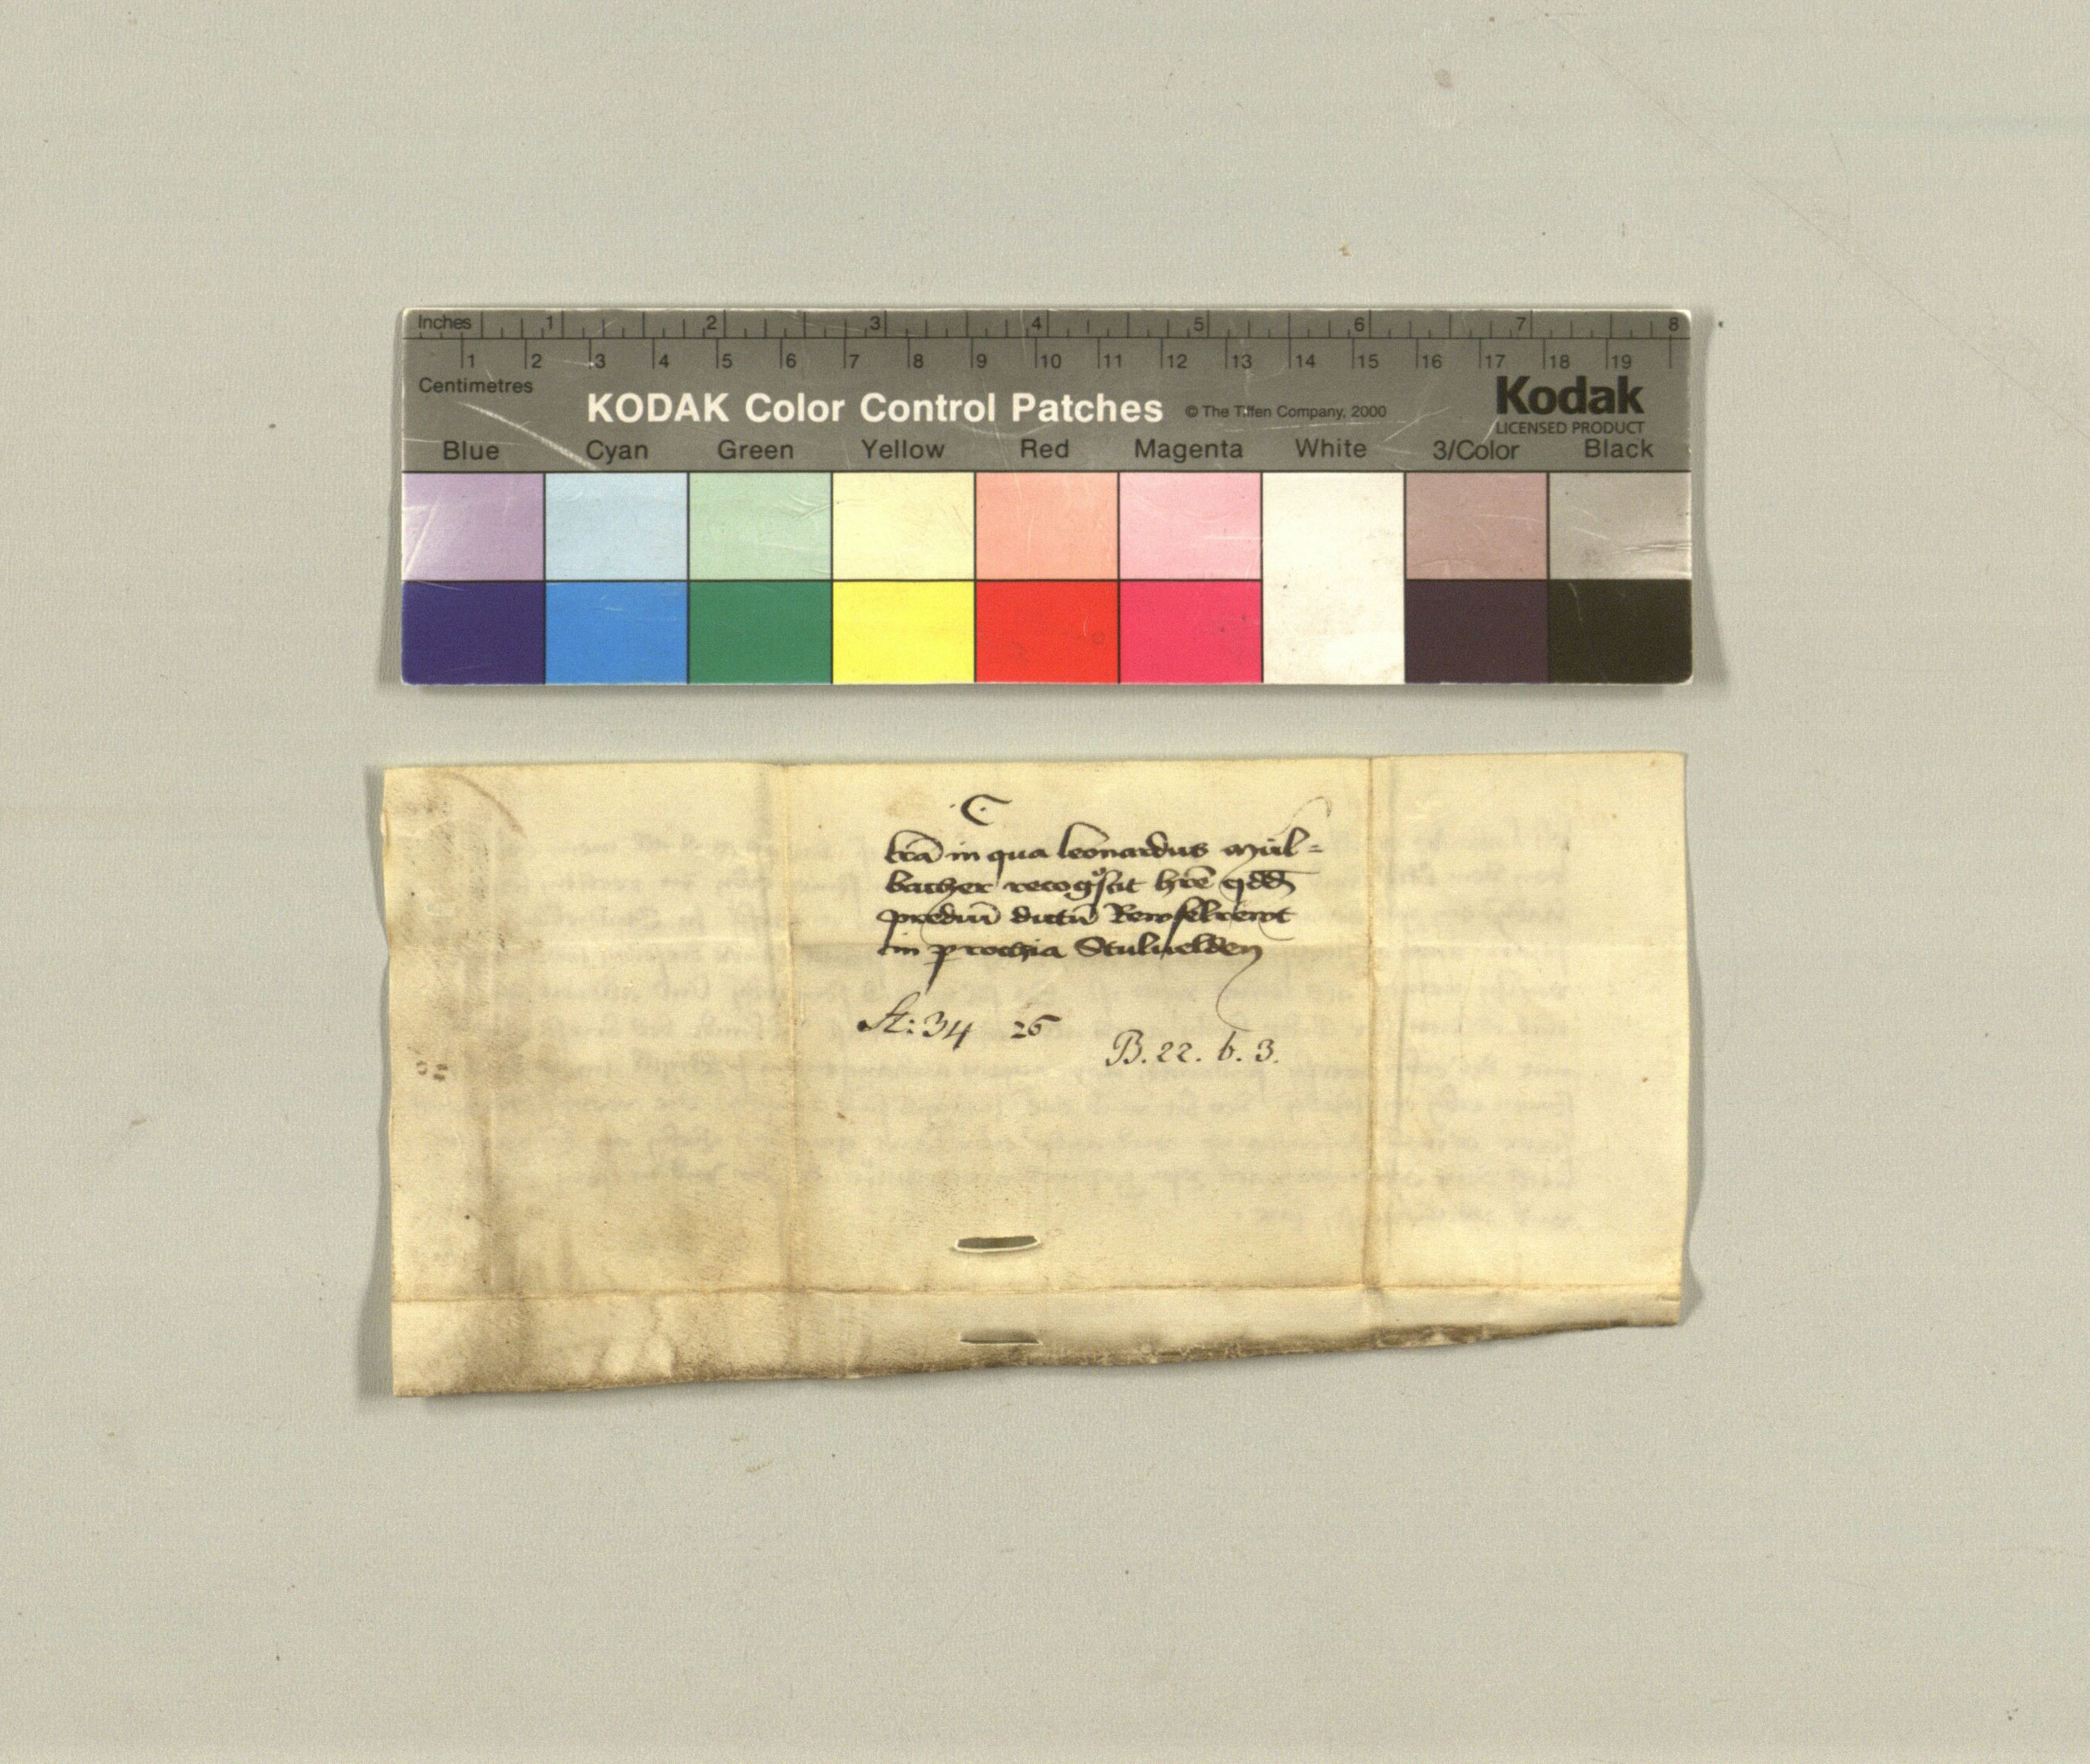 Inches 1 2 3 4 5 6 7 8
1 2 3 4 5 6 7 8 9 10 11 12 13 14 15 16 17 18 19
Centimetres
KODAK Color Control Patches © The Tiffen Company, 2000 Kodak
LICENSED PRODUCT
Blue Cyan Green Yellow Red Magenta White 3/Color Black
C
lr̄a in qua leonardus Mül-
bacher recogͦscit hr̄e qdd̄
prediū dictū Rewselrewt
in ꝑrochia Stuluelden
St: 34 26
B. 22. b. 3.